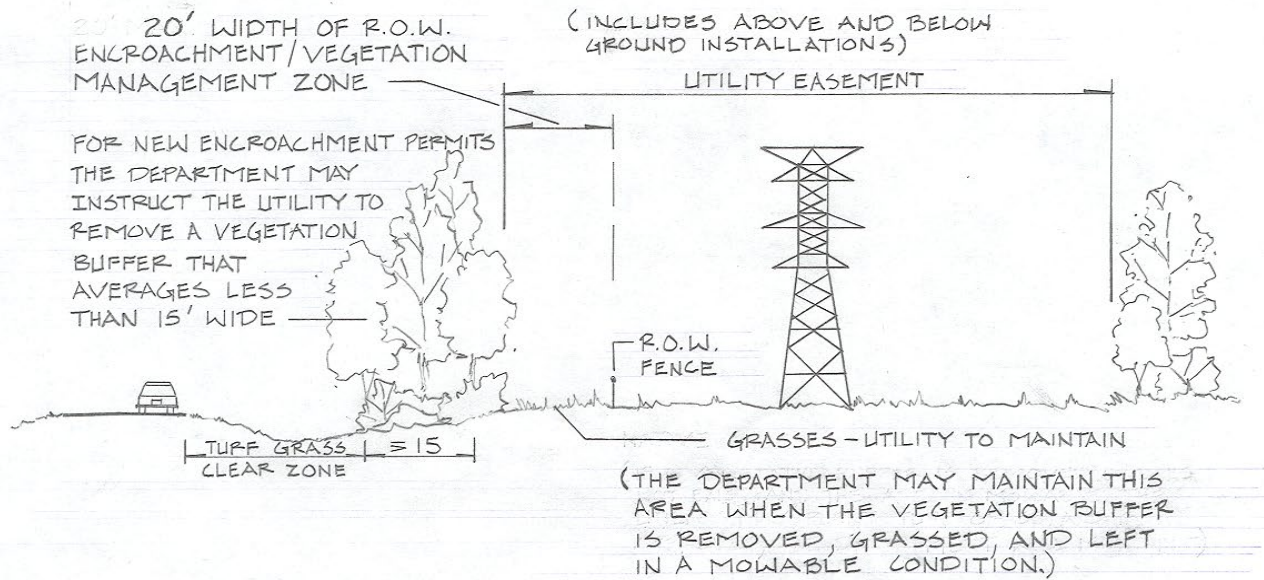 20' WIDTH OF R.O.W.
ENCROACHMENT/VEGETATION
MANAGEMENT ZONE
(INCLUDES ABOVE AND BELOW
GROUND INSTALLATIONS)
UTILITY EASEMENT
FOR NEW ENCROACHMENT PERMITS
THE DEPARTMENT MAY
INSTRUCT THE UTILITY TO
REMOVE A VEGETATION
BUFFER THAT
AVERAGES LESS
THAN 15' WIDE
R.O.W.
FENCE
TURF GRASS
CLEAR ZONE
15
GRASSES-UTILITY TO MAINTAIN
(THE DEPARTMENT MAY MAINTAIN THIS
AREA WHEN THE VEGETATION BUFFER
IS REMOVED, GRASSED, AND LEFT
IN A MOWABLE CONDITION.)